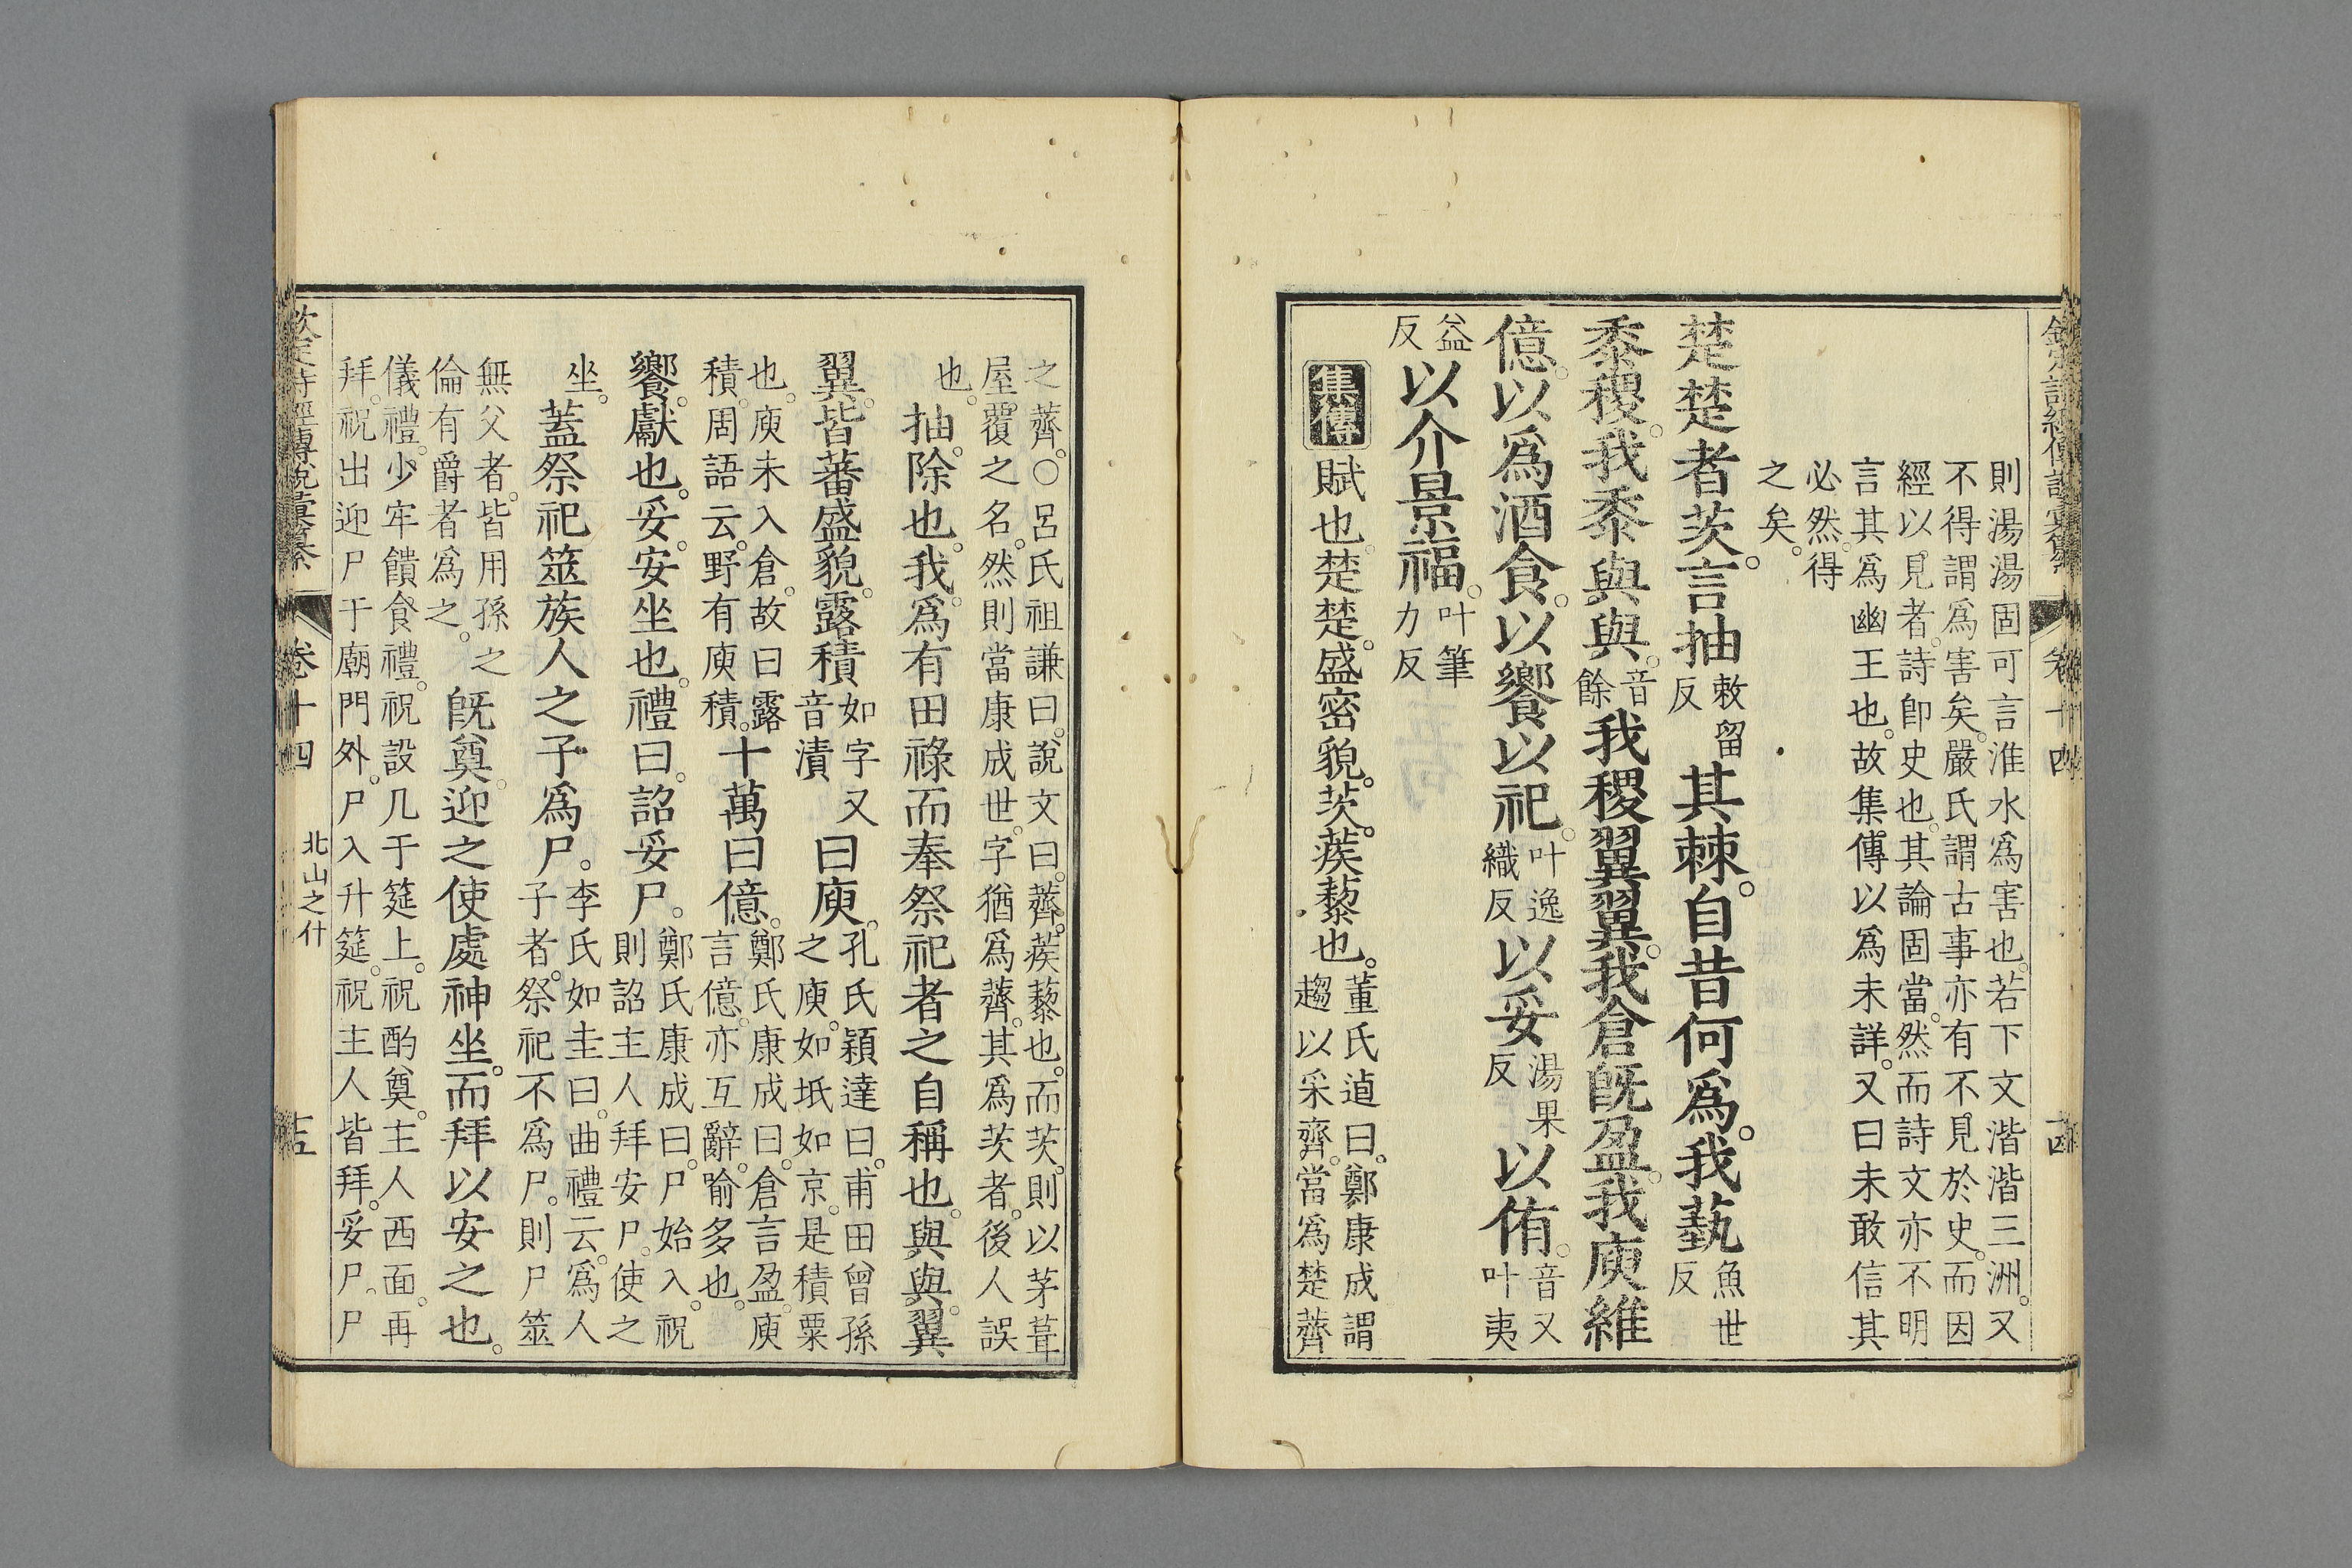 欽定詩經傳說彙纂 卷十四 十四
則湯湯固可言淮水爲害也若下文湝湝三洲又
不得謂爲害矣嚴氏謂古事亦有不見於史而因
經以見者詩卽史也其論固當然而詩文亦不明
言其爲幽王也故集傳以爲未詳又曰未敢信其
必然得
之矣
楚楚者茨言抽敕留反其棘自昔何爲我蓺魚世反
黍稷我黍與與音餘我稷翼翼我倉旣盈我庾維
億以爲酒食以饗以祀叶逸織反以妥湯果反以侑音又叶夷
益反以介景福叶筆力反
集傳賦也楚楚盛密貌茨蒺藜也董氏逌曰鄭康成謂趨以采齊當爲楚薺
之薺○呂氏祖謙曰說文曰薺蒺藜也而茨則以茅葺
屋覆之名然則當康成世字猶爲薺其爲茨者後人誤
也抽除也我爲有田祿而奉祭祀者之自稱也與與翼
翼皆蕃盛貌露積如字又音漬曰庾孔氏穎達曰甫田曾孫之庾如坻如京是積粟
也庾未入倉故曰露積周語云野有庾積十萬曰億鄭氏康成曰倉言盈庾言億亦互辭喻多也
饗獻也妥安坐也禮曰詔妥尸鄭氏康成曰尸始入祝則詔主人拜安尸使之
坐蓋祭祀筮族人之子爲尸李氏如圭曰曲禮云爲人子者祭祀不爲尸則尸筮
無父者皆用孫之倫有爵者爲之旣奠迎之使處神坐而拜以安之也
儀禮少牢饋食禮祝設几于筵上祝酌奠主人西面再
拜祝出迎尸于廟門外尸入升筵祝主人皆拜妥尸尸
欽定詩經傳說彙纂 卷十四 北山之什 十五